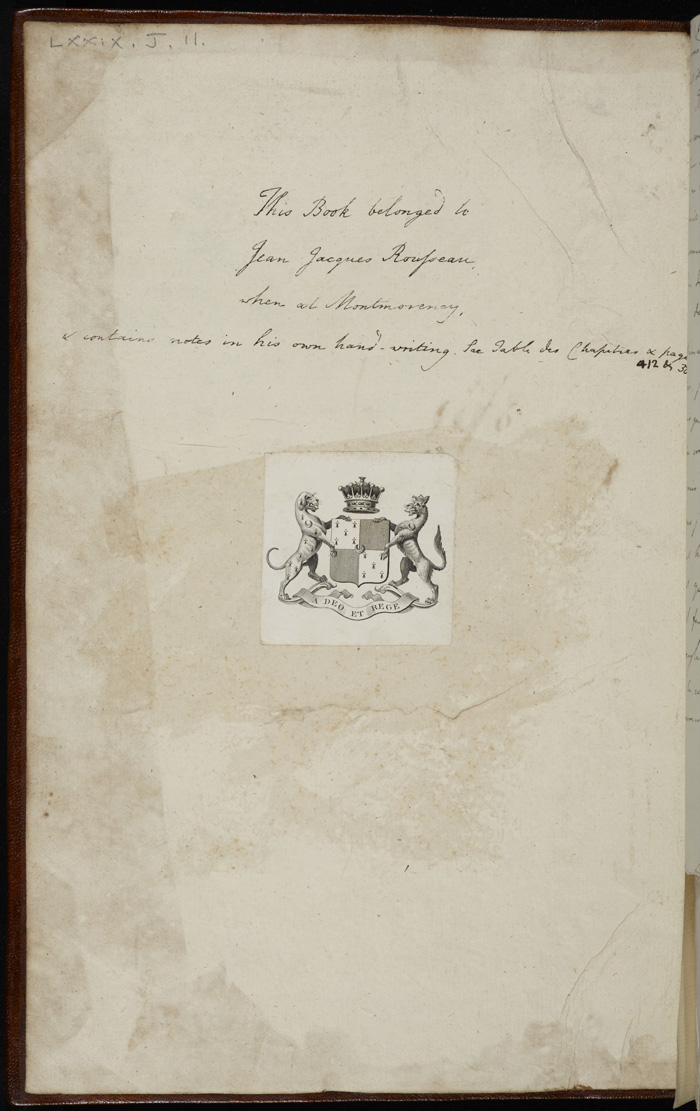 LXXIX. J. 11.
This Book belonged to
Jean Jacques Rousseau,
when at Montmorency,
& contains notes in his own hand-writing. See Table des Chapitres & page
412 &
A DEO ET REGE